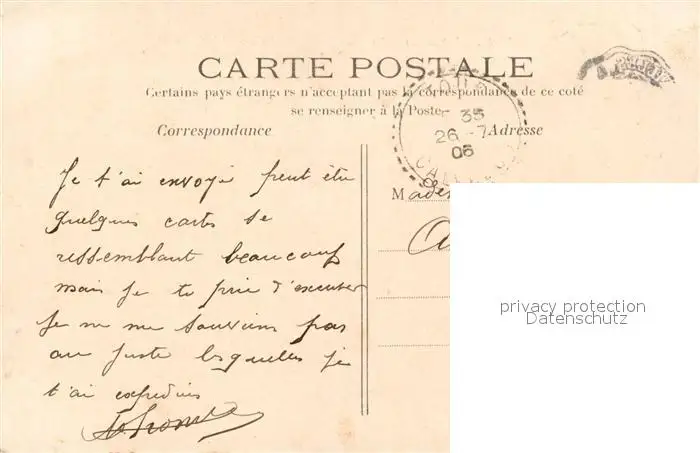 CARTE POSTALE
Certains pays étrangers n'acceptant pas la correspondance de ce coté
se renseigner à la Poste.
Correspondance
Adresse
35
26 -7
06
CAL
Je t'ai envoyé peut être
quelques cartes se
ressemblant beaucoup
mais je te prie d'excuser
je ne me souviens pas
au juste lesquelles je
t'ai expédiées
privacy protection
Datenschutz